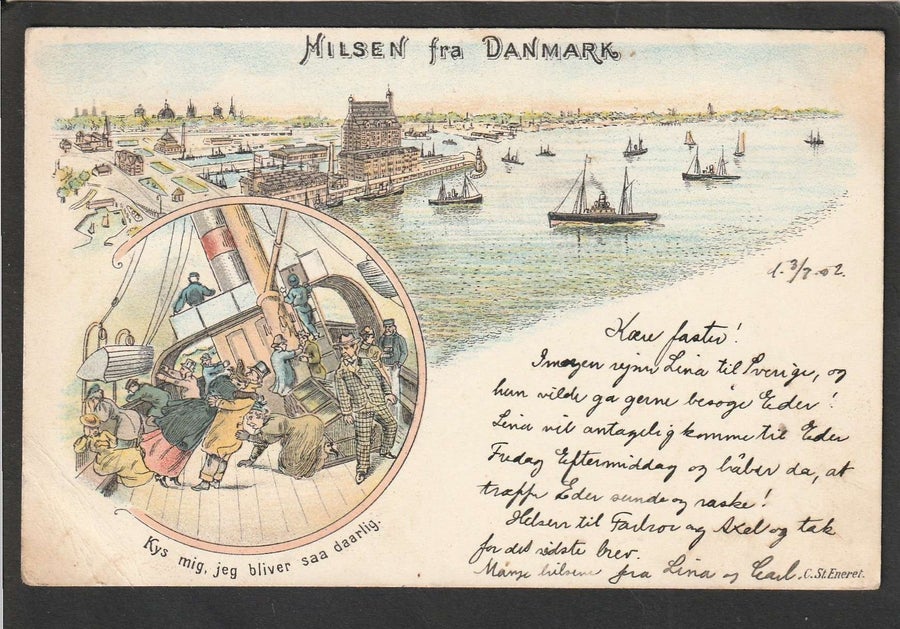 HILSEN fra DANMARK
d. 3/7.02.
Kære faster!
Imorgen rejser Lina til Sverige, og
hun vilde ga gerne besøge Eder!
Lina vil antagelig komme til Eder
Fredag Eftermiddag og håber da, at
træffe Eder sunde og raske!
Hilsen til Farbror og Axel og tak
for det sidste brev.
Mange hilsener fra Lina og Carl.
Kys mig, jeg bliver saa daarlig.
C. St. Eneret.